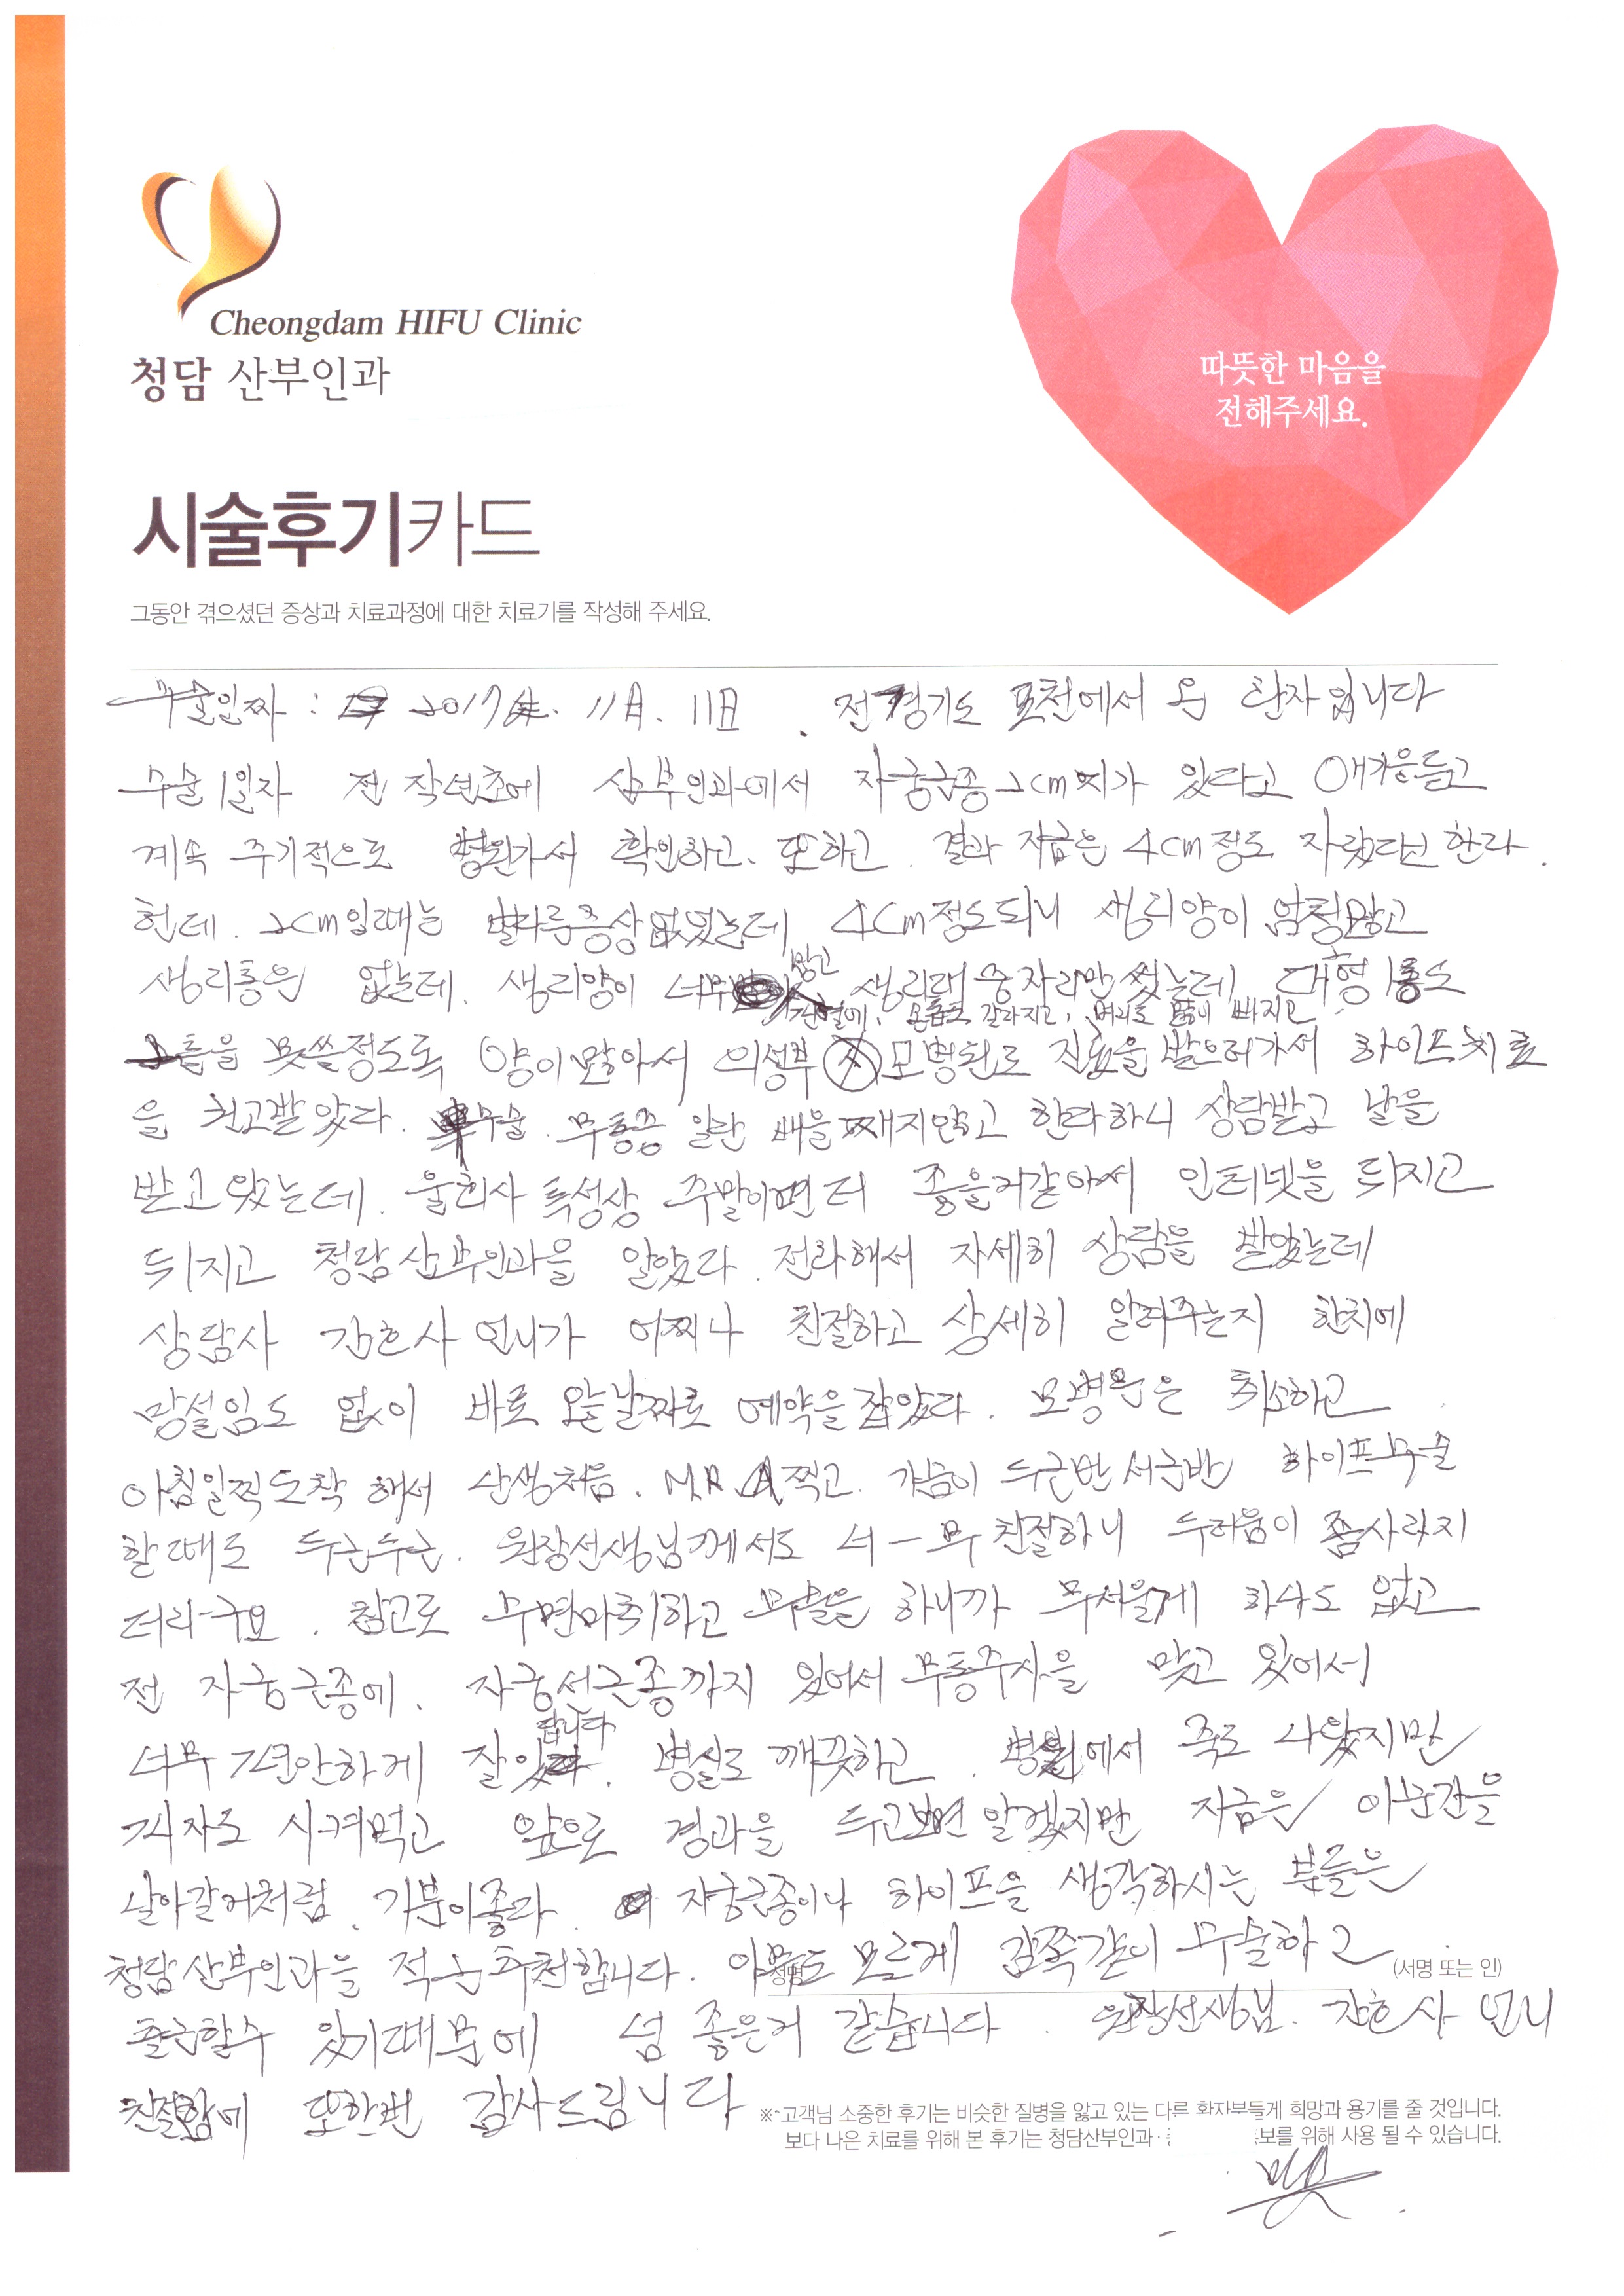 Cheongdam HIFU Clinic
청담 산부인과
따뜻한 마음을
전해주세요.
시술후기카드
그동안 겪으셨던 증상과 치료과정에 대한 치료기를 작성해 주세요.
수술일짜 : 2017년. 11月. 11日 . 전 경기도 포천에서 온 환자입니다
수술일자 전 작년초에 산부인과에서 자궁근종 2cm 있다고 얘기을듣고
계속 주기적으로 병원가서 확인하고. 또하고. 결과 지금은 4cm정도 자랐다고 한다.
헌데. 2cm일때는 별다른증상없었는데 4cm정도되니 생리양이 엄청많고
생리통은 없는데. 생리양이 너무 많고 생리대 중자리만 썼는데 대형 1통도
빈혈에, 손톱도 갈라지고, 머리도 많이 빠지고
못쓸정도록 양이많아서 의정부 모병원로 진료을 받으러가서 하이프치료
을 권고받았다. 수술. 무통증 일단 배을째지않고 한다하니 상담받고 날을
받고왔는데. 울회사 특성상 주말이면 더 좋을거같아서 인터넷을 뒤지고
뒤지고 청담산부인과을 알았다. 전화해서 자세히 상담을 받았는데
상담사 간호사 언니가 어찌나 친절하고 상세히 알려주는지 한치에
망설임도 없이 바로 오늘날짜로 예약을잡았다. 모병원은 취소하고
아침일찍도착 해서 난생처음. M.R.A찍고. 가슴이 두근반서근반 하이프수술
할때도 두근두근. 원장선생님께서도 너-무 친절하니 두려움이 좀사라지
더라구요. 참고로 수면마취하고 수술을 하니까 무서울게 하나도 없고
전 자궁근종에. 자궁선근종까지 있어서 무통주사을 맞고 있어서
너무 편안하게 잘있답니다. 병실도 깨끗하고. 병원에서 죽도 나왔지만
피자도 시켜먹고 앞으로 경과을 두고보면 알겠지만 지금은 이순간을
날아갈거처럼. 기분이좋다. 자궁근종이나 하이프을 생각하시는 분들은
청담산부인과을 적극추천합니다. 아무도 모르게 감쪽같이 수술하고
성명
(서명 또는 인)
출근할수 있기때문에 넘 좋은거 같습니다. 원장선생님. 간호사 언니
친절함에 또한번 감사드립니다
※ 고객님 소중한 후기는 비슷한 질병을 앓고 있는 다른 환자분들게 희망과 용기를 줄 것입니다.
보다 나은 치료를 위해 본 후기는 청담산부인과· 위해 사용 될 수 있습니다.